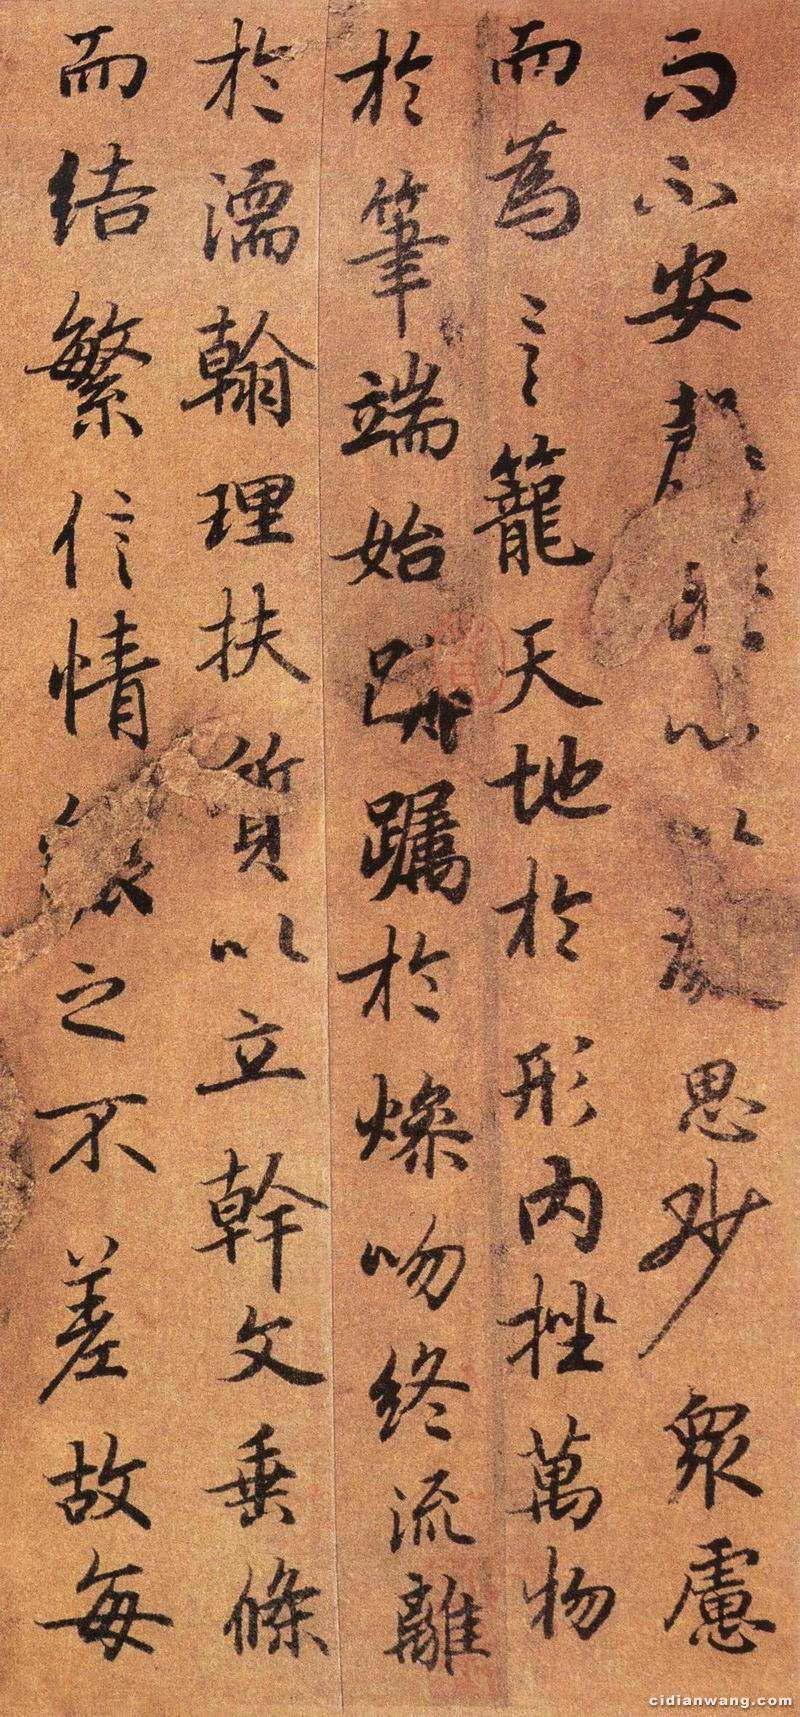 而不安心以思眾慮
而為言籠天地於形內挫萬物
於筆端始躑躅於燥吻終流離
於濡翰理扶質以立幹文垂條
而結繁信情之不差故每
cidianwang.com